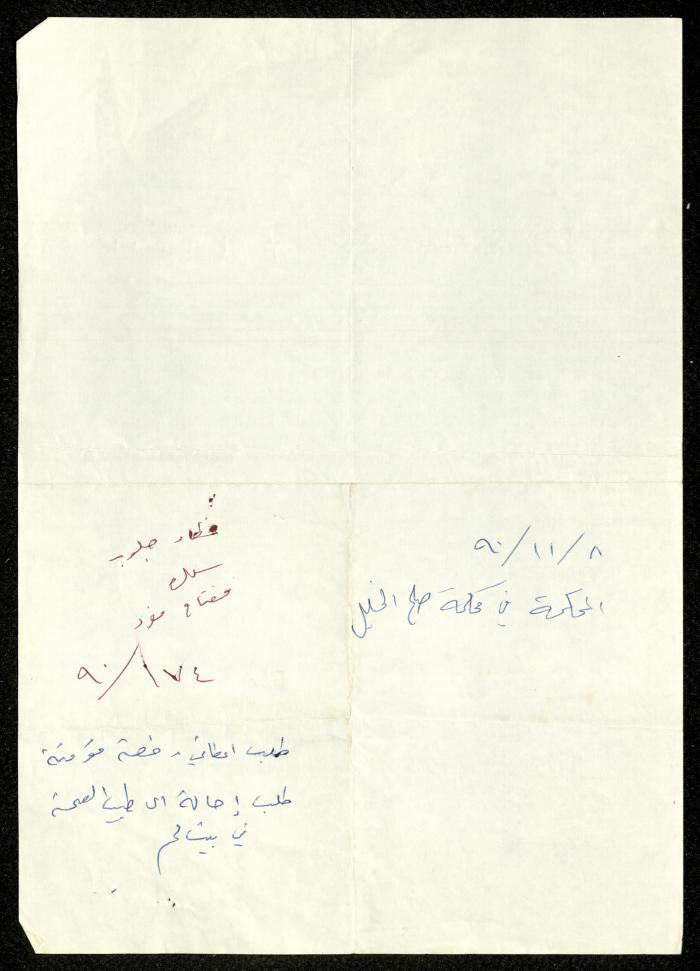 ٩٠/١١/٨
المحكمة في محكمة صلح الخليل
سلك
مفتاح مفرد
٩٠/١٧٤
طلب اعطائي رخصة مؤقتة
طلب إحالة الى طبيب الصحة
في بيت لحم